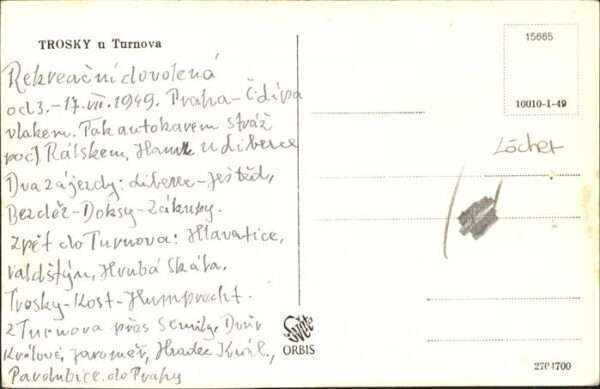 TROSKY u Turnova
Rekreační dovolená
od 3.-17.VII.1949. Praha-Č.Lípa
vlakem. Pak autokarem Stráž
pod Rálskem, Hamr u Liberce
Dva zájezdy: Liberec-Ještěd,
Bezděz-Doksy-Zákupy.
Zpět do Turnova: Hlavatice,
Valdštýn, Hrubá Skála.
Trosky-Kost-Humprecht.
Z Turnova přes Semily, Dvůr
Králové, Jaroměř, Hradec Král.,
Pardubice do Prahy
15665
10010-1-49
Löcher
Svět
ORBIS
2704700